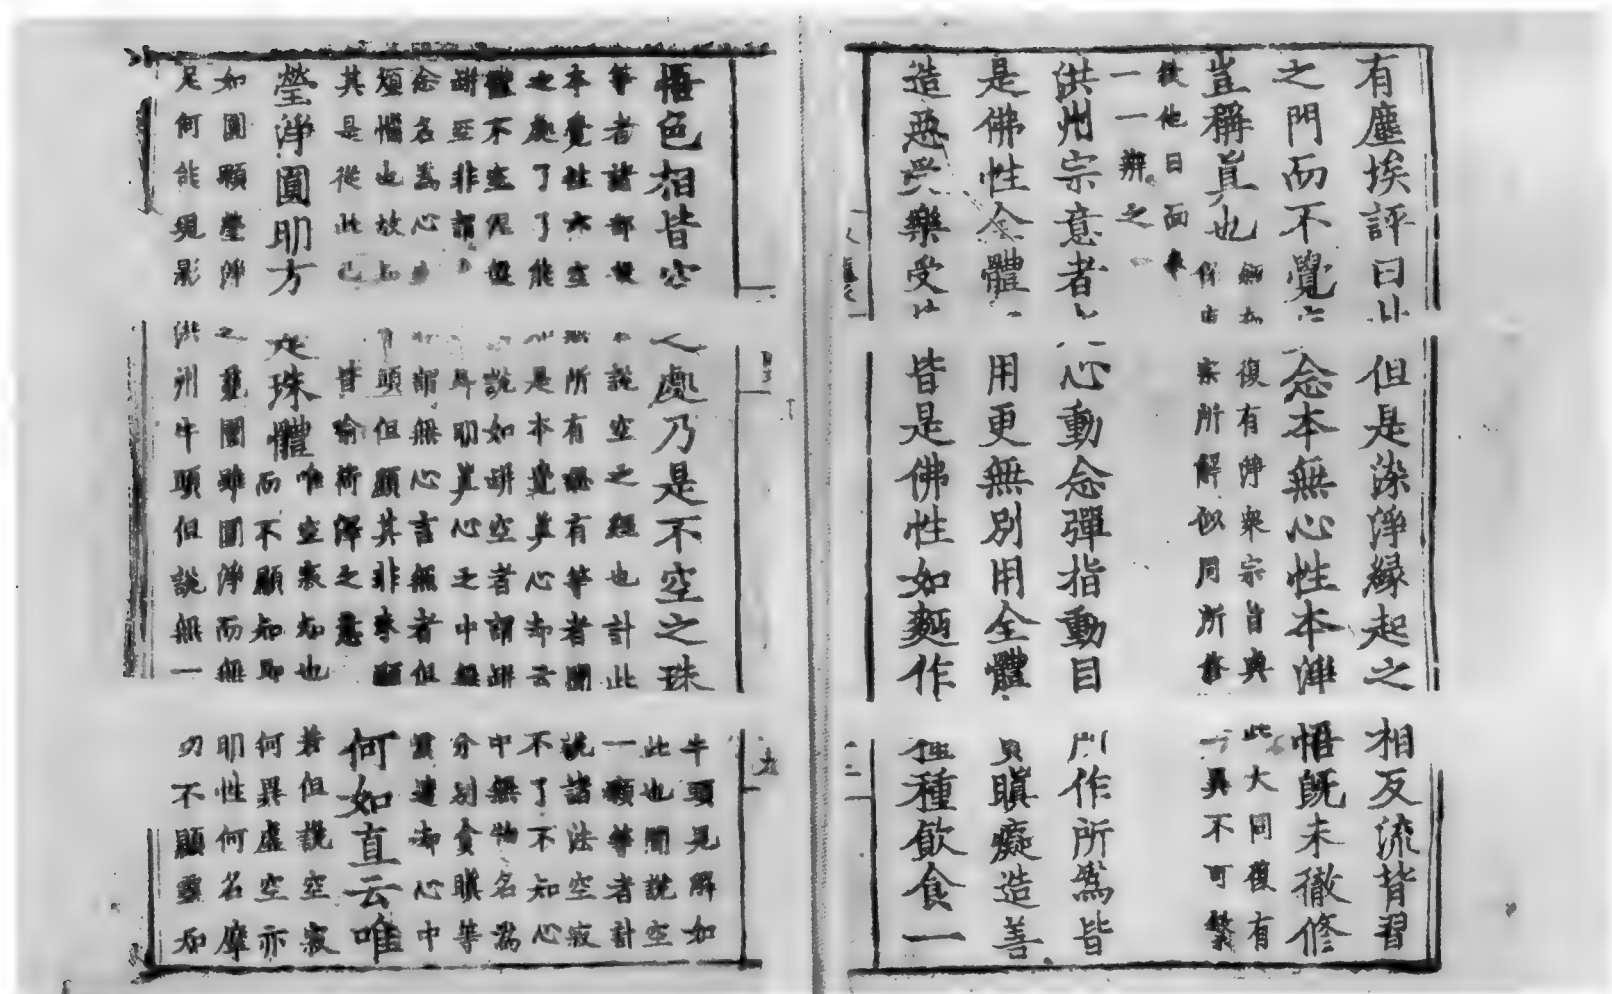 有塵埃評曰此但是染淨緣起之相反流背習
之門而不覺妄念本無心性本淨悟既未徹修
豈稱眞也
復有淨衆宗旨與此大同復有
宗所解似同所修異不可繁
叙他日面奉
一一辨之
洪州宗意者心動念彈指動目所作所爲皆
是佛性全體用更無別用全體貪瞋癡造善
造惡受樂受皆是佛性如麵作種種飲食一
悟色相皆空之處乃是不空之珠
牛頭見解如
此也聞說空
等者諸部般說空之經也計此一顆等者計
本覺性亦空無所有認有等者聞說諸法空寂
之處了了能是本覺眞心却云不了不知心
體不空說如缾空者謂缾中無物名爲
缾空非謂明眞心之中無分別貪瞋等
念名爲心謂無心言無者但爲遣却心中
煩惱也故知頭但顯其非未顯
其是從此已皆喻荷澤之意
何如直云唯
瑩淨圓明方是珠體
唯空寂知也若但說空寂
而不顯知即何異虛空亦
如圓顆瑩淨之團雖圓淨而無明性何名摩
尼何能現影洪州牛頭但說無一切不顯靈知